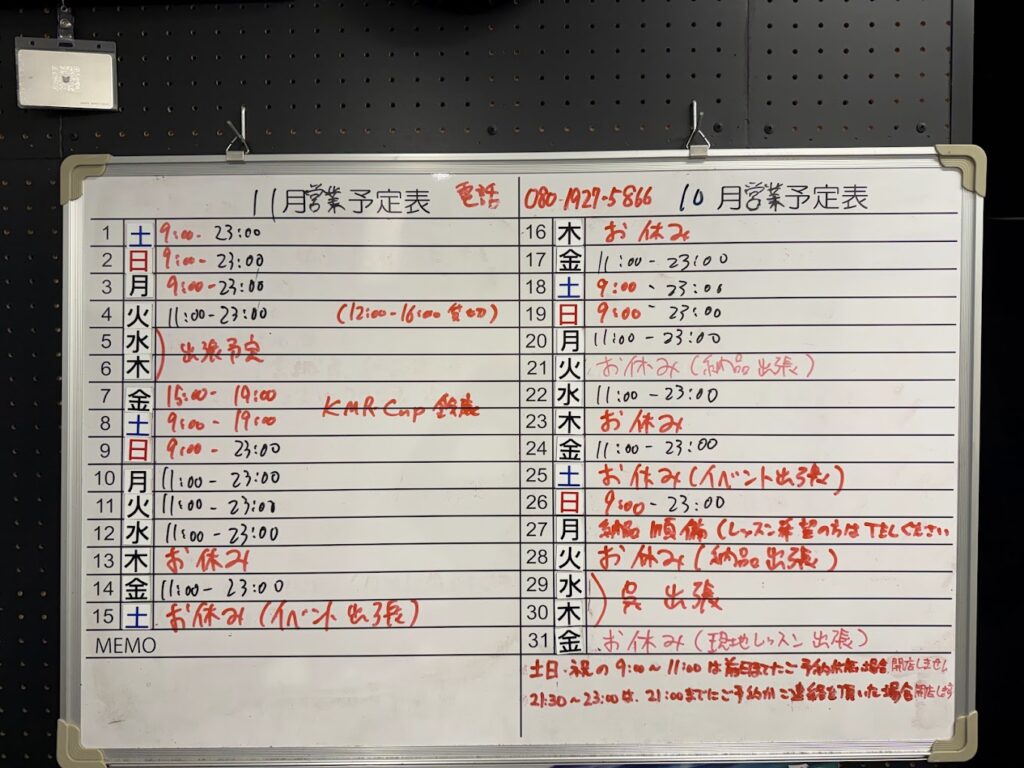 11月営業予定表 電話 080-1927-5866 10月営業予定表
1 土 9:00- 23:00
2 日 9:00- 23:00
3 月 9:00-23:00
4 火 11:00-23:00 (12:00-16:00 貸切)
5 水
6 木
出張予定
7 金 15:00- 19:00
8 土 9:00- 19:00
KMR Cup
9 日 9:00- 23:00
10 月 11:00- 23:00
11 火 11:00- 23:00
12 水 11:00-23:00
13 木 お休み
14 金 11:00- 23:00
15 土 お休み(イベント出張)
MEMO
16 木 お休み
17 金 11:00-23:00
18 土 9:00-23:00
19 日 9:00-23:00
20 月 11:00-23:00
21 火 お休み(納品出張)
22 水 11:00-23:00
23 木 お休み
24 金 11:00-23:00
25 土 お休み(イベント出張)
26 日 9:00-23:00
27 月 納品 準備 (レッスン希望の方はTELください
28 火 お休み(納品出張)
29 水
30 木
呉 出張
31 金 お休み(現地レッスン出張)
土日・祝の 9:00〜11:00は前日までにご予約 場合 開店しません
21:30〜23:00は、21:00までにご予約かご連絡を頂いた場合開店します